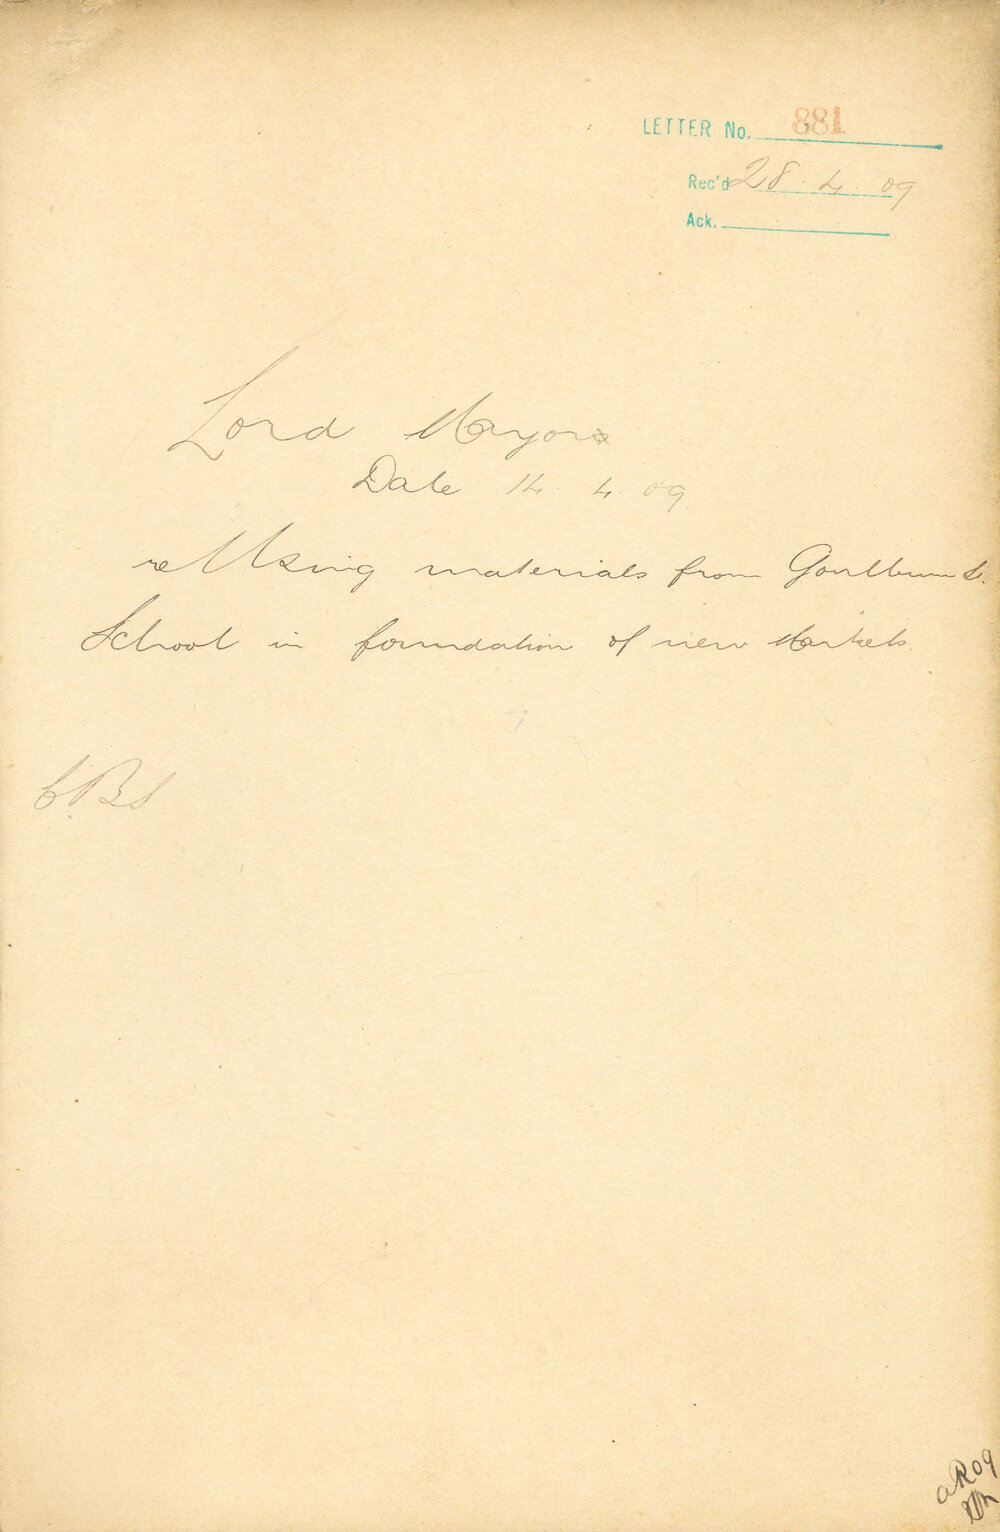 LETTER No. 881
Rec'd 28.4.09
Ack.
Lord Mayor
Date 14.4.09
re Using materials from Goulburn St.
School in foundation of new Markets.